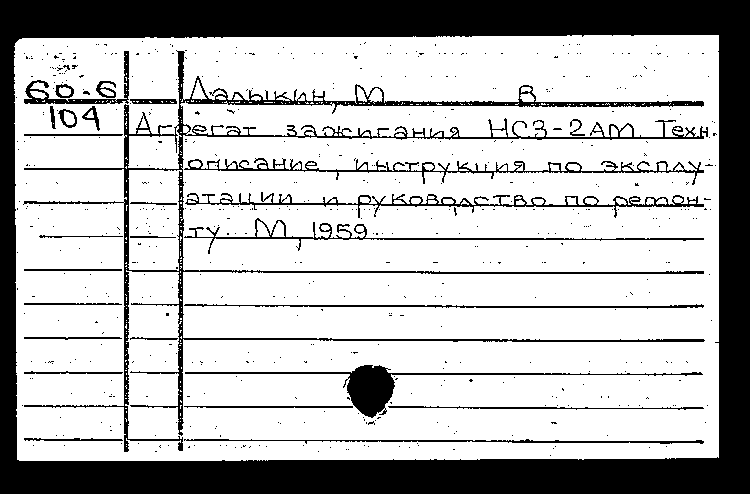 60-6 Лалыкин, М В
104 Агрегат зажигания НСЗ-2АМ. Техн.
описание, инструкция по эксплу-
атации и руководство по ремон-
ту. М, 1959